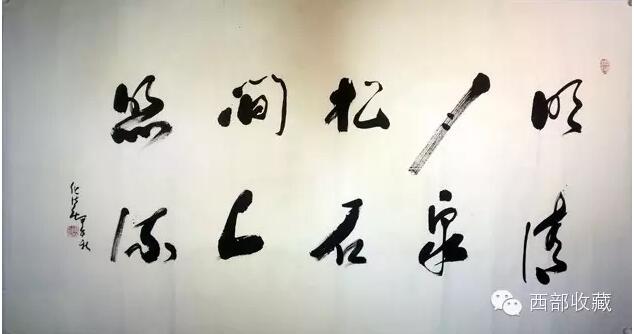 明月松間照
清泉石上流
甲午秋
西部收藏